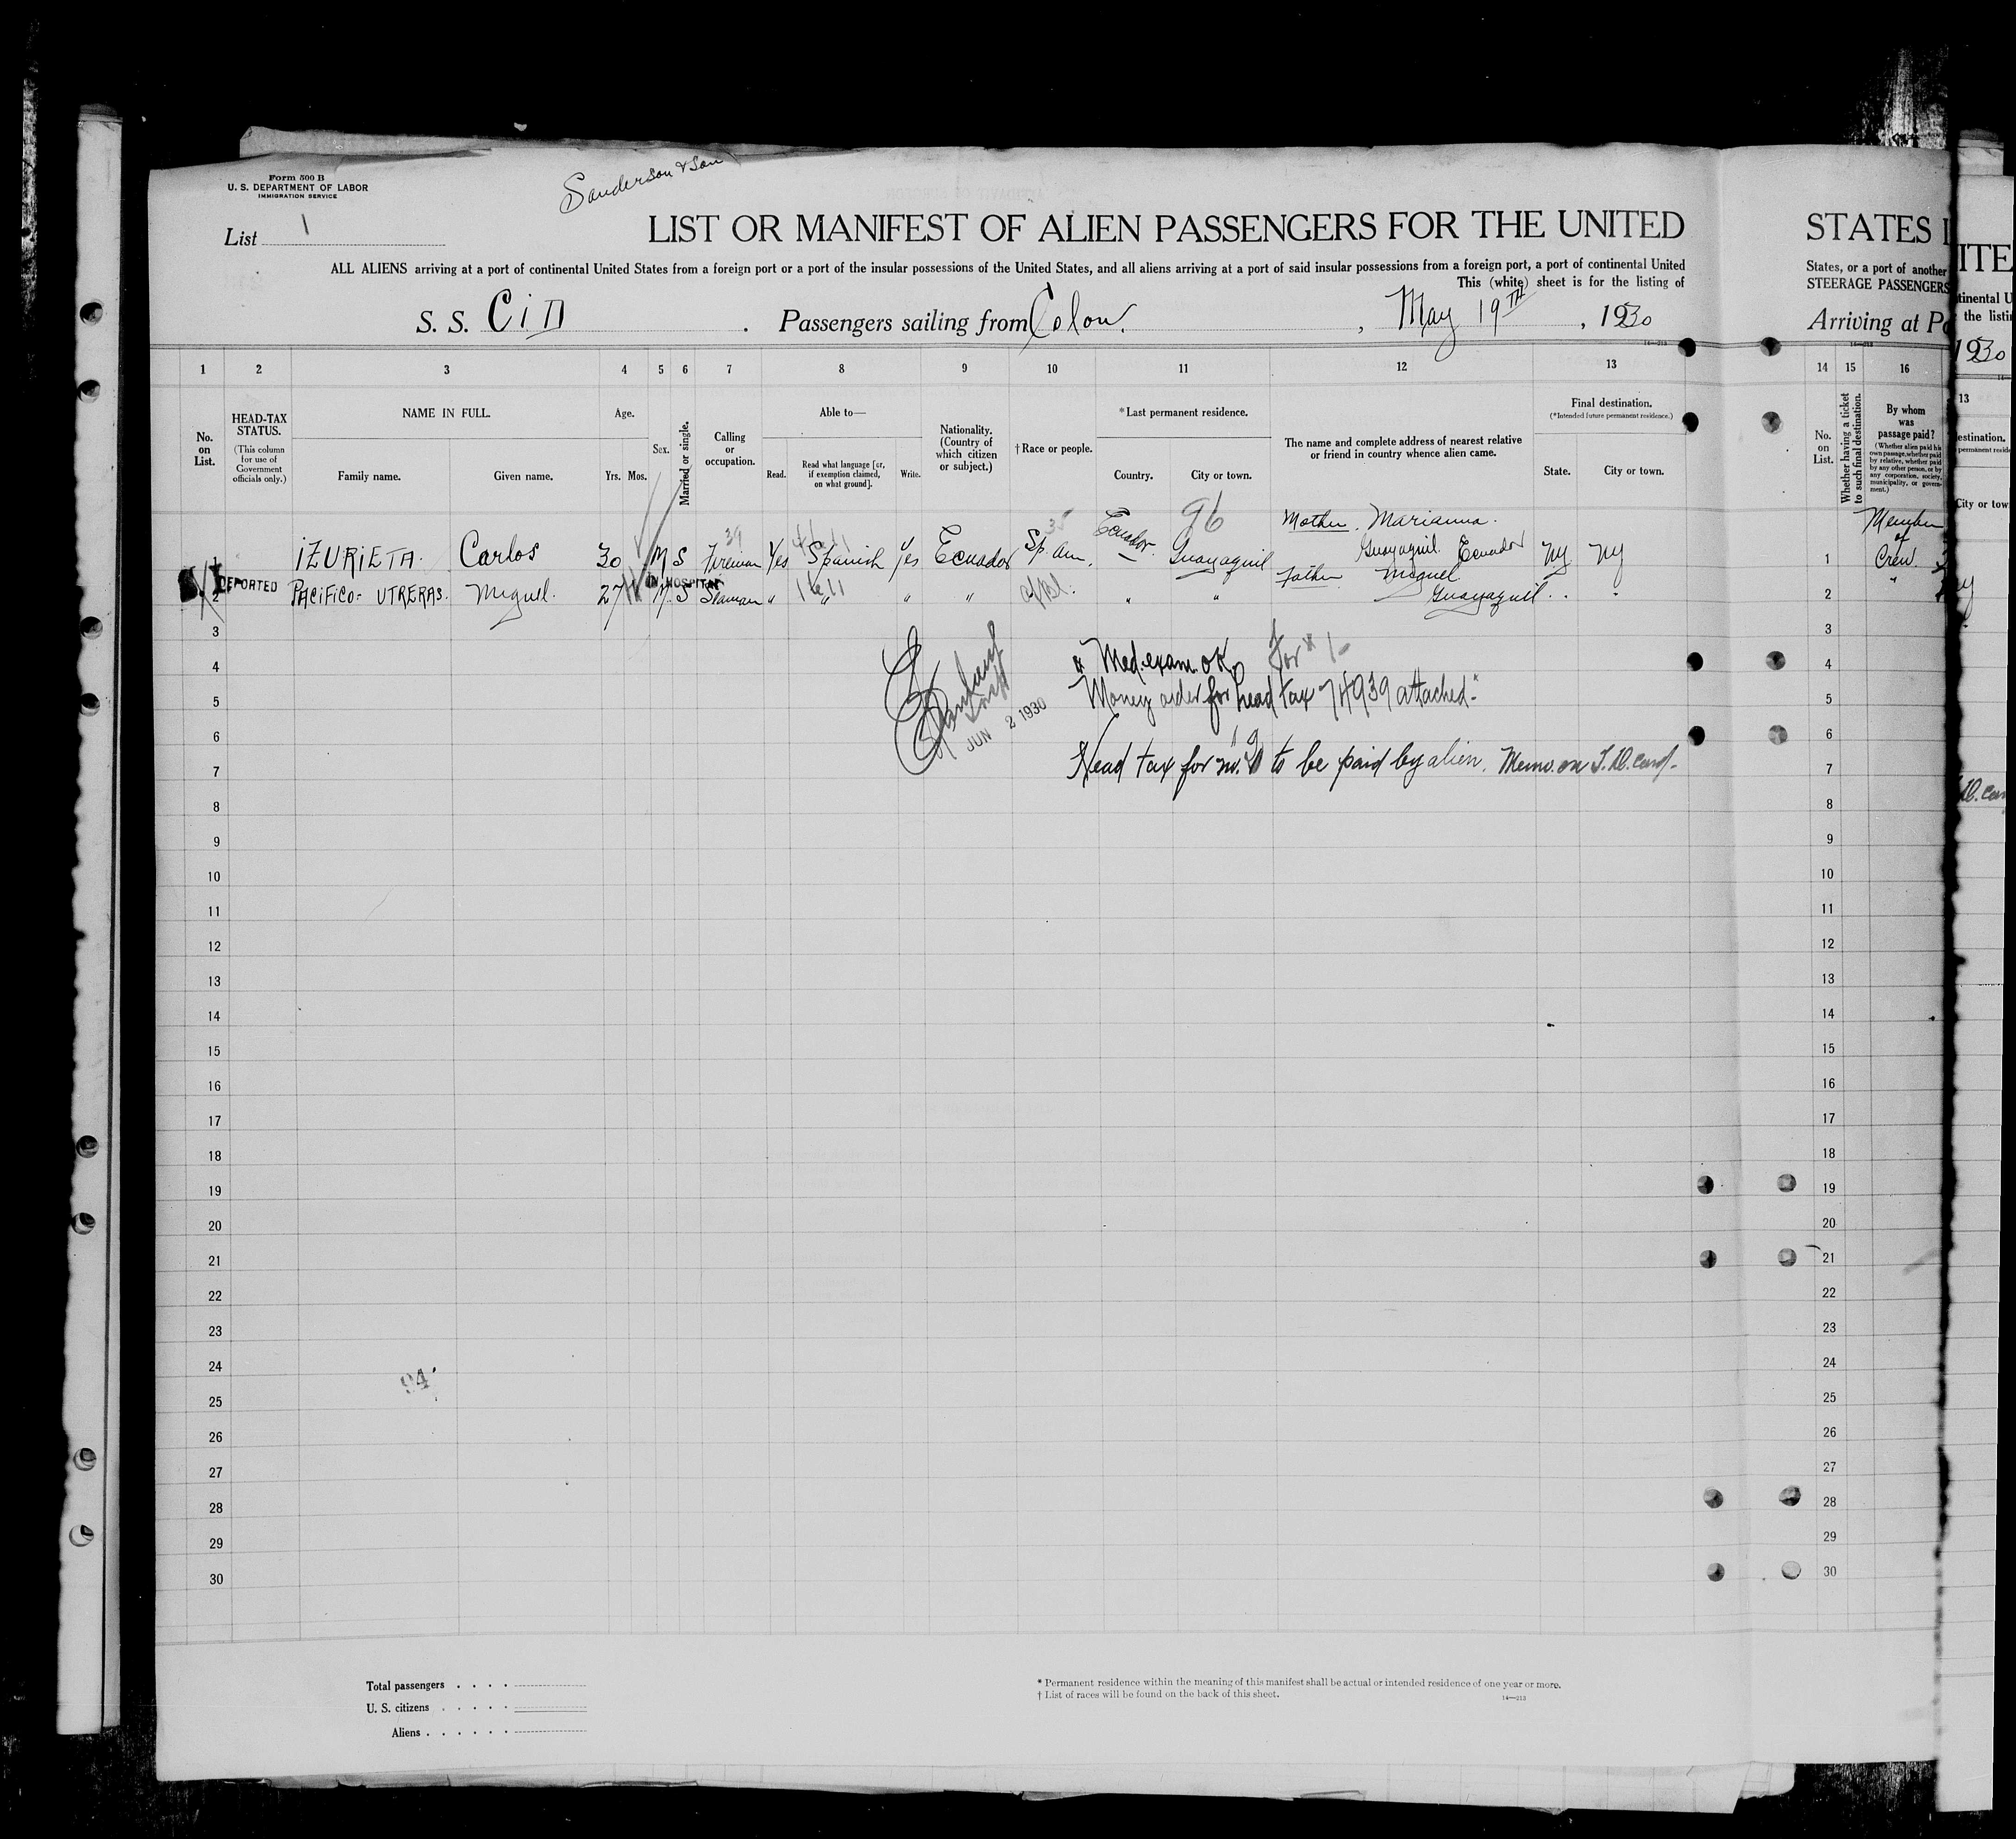 Form 500 B
U. S. DEPARTMENT OF LABOR
IMMIGRATION SERVICE
Sanderson & Son
List 1
LIST OR MANIFEST OF ALIEN PASSENGERS FOR THE UNITED
STATES I
ITE
ALL ALIENS arriving at a port of continental United States from a foreign port or a port of the insular possessions of the United States, and all aliens arriving at a port of said insular possessions from a foreign port, a port of continental United
States, or a port of another
This (white) sheet is for the listing of
STEERAGE PASSENGERS
tinental U
the listi
S. S. CiD . Passengers sailing from Colon. , May 19TH , 1930
Arriving at Po
1930
14—213
1 2 3 4 5 6 7 8 9 10 11 12 13
14 15 16
13
No. on List.
HEAD-TAX STATUS.
(This column for use of Government officials only.)
NAME IN FULL.
Family name. Given name.
Age.
Yrs. Mos.
Sex.
Married or single.
Calling or occupation.
Able to—
Read. Read what language [or, if exemption claimed, on what ground]. Write.
Nationality. (Country of which citizen or subject.)
†Race or people.
*Last permanent residence.
Country. City or town.
The name and complete address of nearest relative or friend in country whence alien came.
Final destination.
(*Intended future permanent residence.)
State. City or town.
No. on List.
Whether having a ticket to such final destination.
By whom was passage paid?
(Whether alien paid his own passage, whether paid by relative, whether paid by any other person, or by any corporation, society, municipality, or government.)
estination.
permanent reside
City or tow
39 35 96
Mother. Marianna.
Member of
iZURiETA. Carlos 30 M S Fireman Yes Spanish Yes Ecuador Sp. Am. Ecuador. Guayaquil Guayaquil. Ecuador NY NY 1 Crew
DEPORTED
IN HOSPITAL
Father Miguel
2 PACiFiCO- UTRERAS. Miguel. 27 M S Seaman " " " " Af/Bl. " " Guayaquil. " " 2 "
3 3
4 Med. exam. OK. for # 1- 4
5 Money order for head tax 74939 attached. 5
JUN 2 1930
6 6
7 Head tax for no. to be paid by alien. Memo. on card. 7
8 8
9 9
10 10
11 11
12 12
13 13
14 14
15 15
16 16
17 17
18 18
19 19
20 20
21 21
22 22
23 23
24 24
94
25 25
26 26
27 27
28 28
29 29
30 30
Total passengers . . . .
U. S. citizens . . . . .
Aliens . . . . . .
* Permanent residence within the meaning of this manifest shall be actual or intended residence of one year or more.
† List of races will be found on the back of this sheet.
14—213